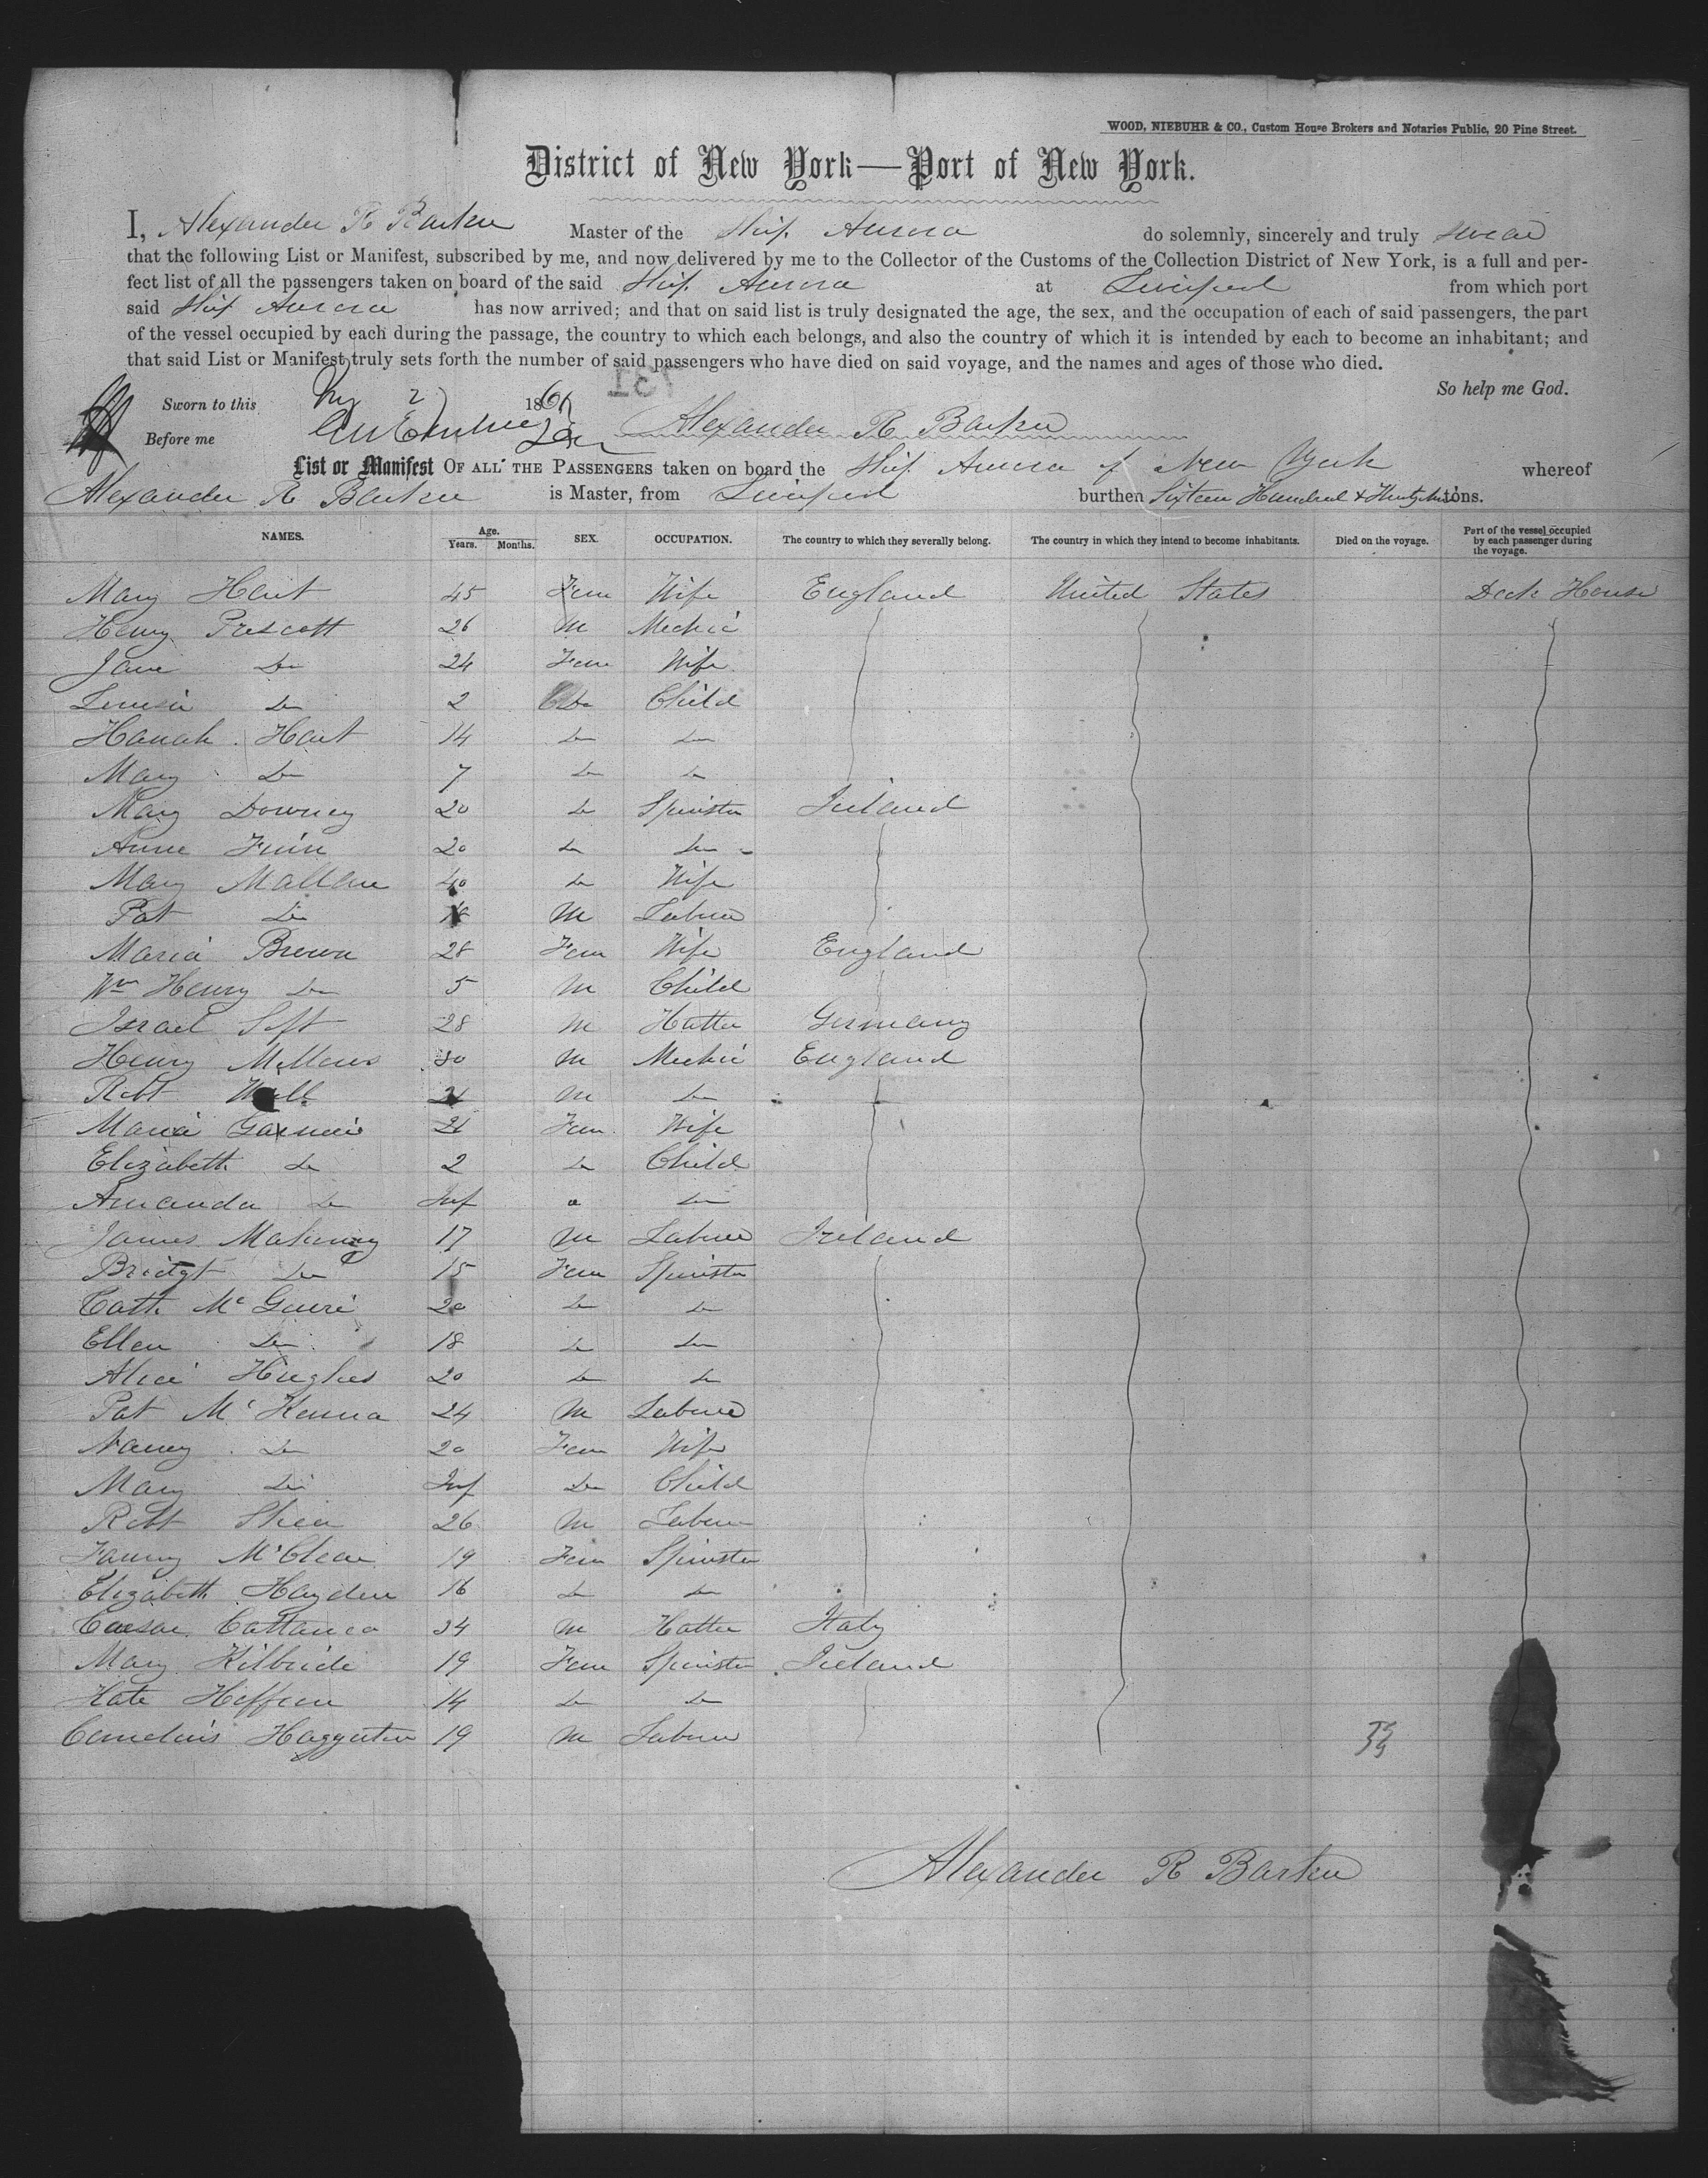 WOOD, NIEBUHR & CO., Custom House Brokers and Notaries Public, 20 Pine Street.
District of New York—Port of New York.
I, Alexander R Barker Master of the Ship Aurora do solemnly, sincerely and truly swear
that the following List or Manifest, subscribed by me, and now delivered by me to the Collector of the Customs of the Collection District of New York, is a full and per-
fect list of all the passengers taken on board of the said Ship Aurora at Liverpool from which port
said Ship Aurora has now arrived; and that on said list is truly designated the age, the sex, and the occupation of each of said passengers, the part
of the vessel occupied by each during the passage, the country to which each belongs, and also the country of which it is intended by each to become an inhabitant; and
that said List or Manifest truly sets forth the number of said passengers who have died on said voyage, and the names and ages of those who died.
So help me God.
Sworn to this 186
Before me Alexander R Barker
List or Manifest OF ALL THE PASSENGERS taken on board the Ship Aurora of New York whereof
Alexander R Barker is Master, from Liverpool burthen Sixteen Hundred & tons.
NAMES. Age. Years. Months. SEX. OCCUPATION. The country to which they severally belong. The country in which they intend to become inhabitants. Died on the voyage. Part of the vessel occupied by each passenger during the voyage.
Mary Hart 45 Fem Wife England United States Deck House
Henry Prescott 26 M Mechic
Jane Do 24 Fem Wife
Louisa Do 2 Do Child
Hanah Hart 14 Do Do
Mary Do 7 Do Do
Mary Downey 20 Do Spinster Ireland
Anne Finn 20 Do Do
Mary Mallon 40 Do Wife
Pat Do 18 M Labore
Maria Brown 28 Fem Wife England
Wm Henry Do 5 M Child
Israel 28 M Hatter Germany
Henry 30 M Mechic England
Robt M Do
Maria 21 Fem Wife
Elizabeth Do 2 Do Child
Amanda Do Inf Do
James Mahoney 17 M Labore Ireland
Bridgt Do 15 Fem Spinster
Cath Mc Guire 20 Do Do
Ellen Do 18 Do Do
Alice Hughes 20 Do Do
Pat Mc Kenna 24 M Labore
Nancy Do 20 Fem Wife
Mary Do Inf Do Child
Robt Shea 26 M Labore
Fanny McClean 19 Fem Spinster
Elizabeth Hayden 16 Do Do
Caesar Cattaneo 34 M Hatter Italy
Mary Kilbride 19 Fem Spinster Ireland
Kate Heffren 14 Do Do
Cornelius Haggerten 19 M Labore
Alexander R Barker